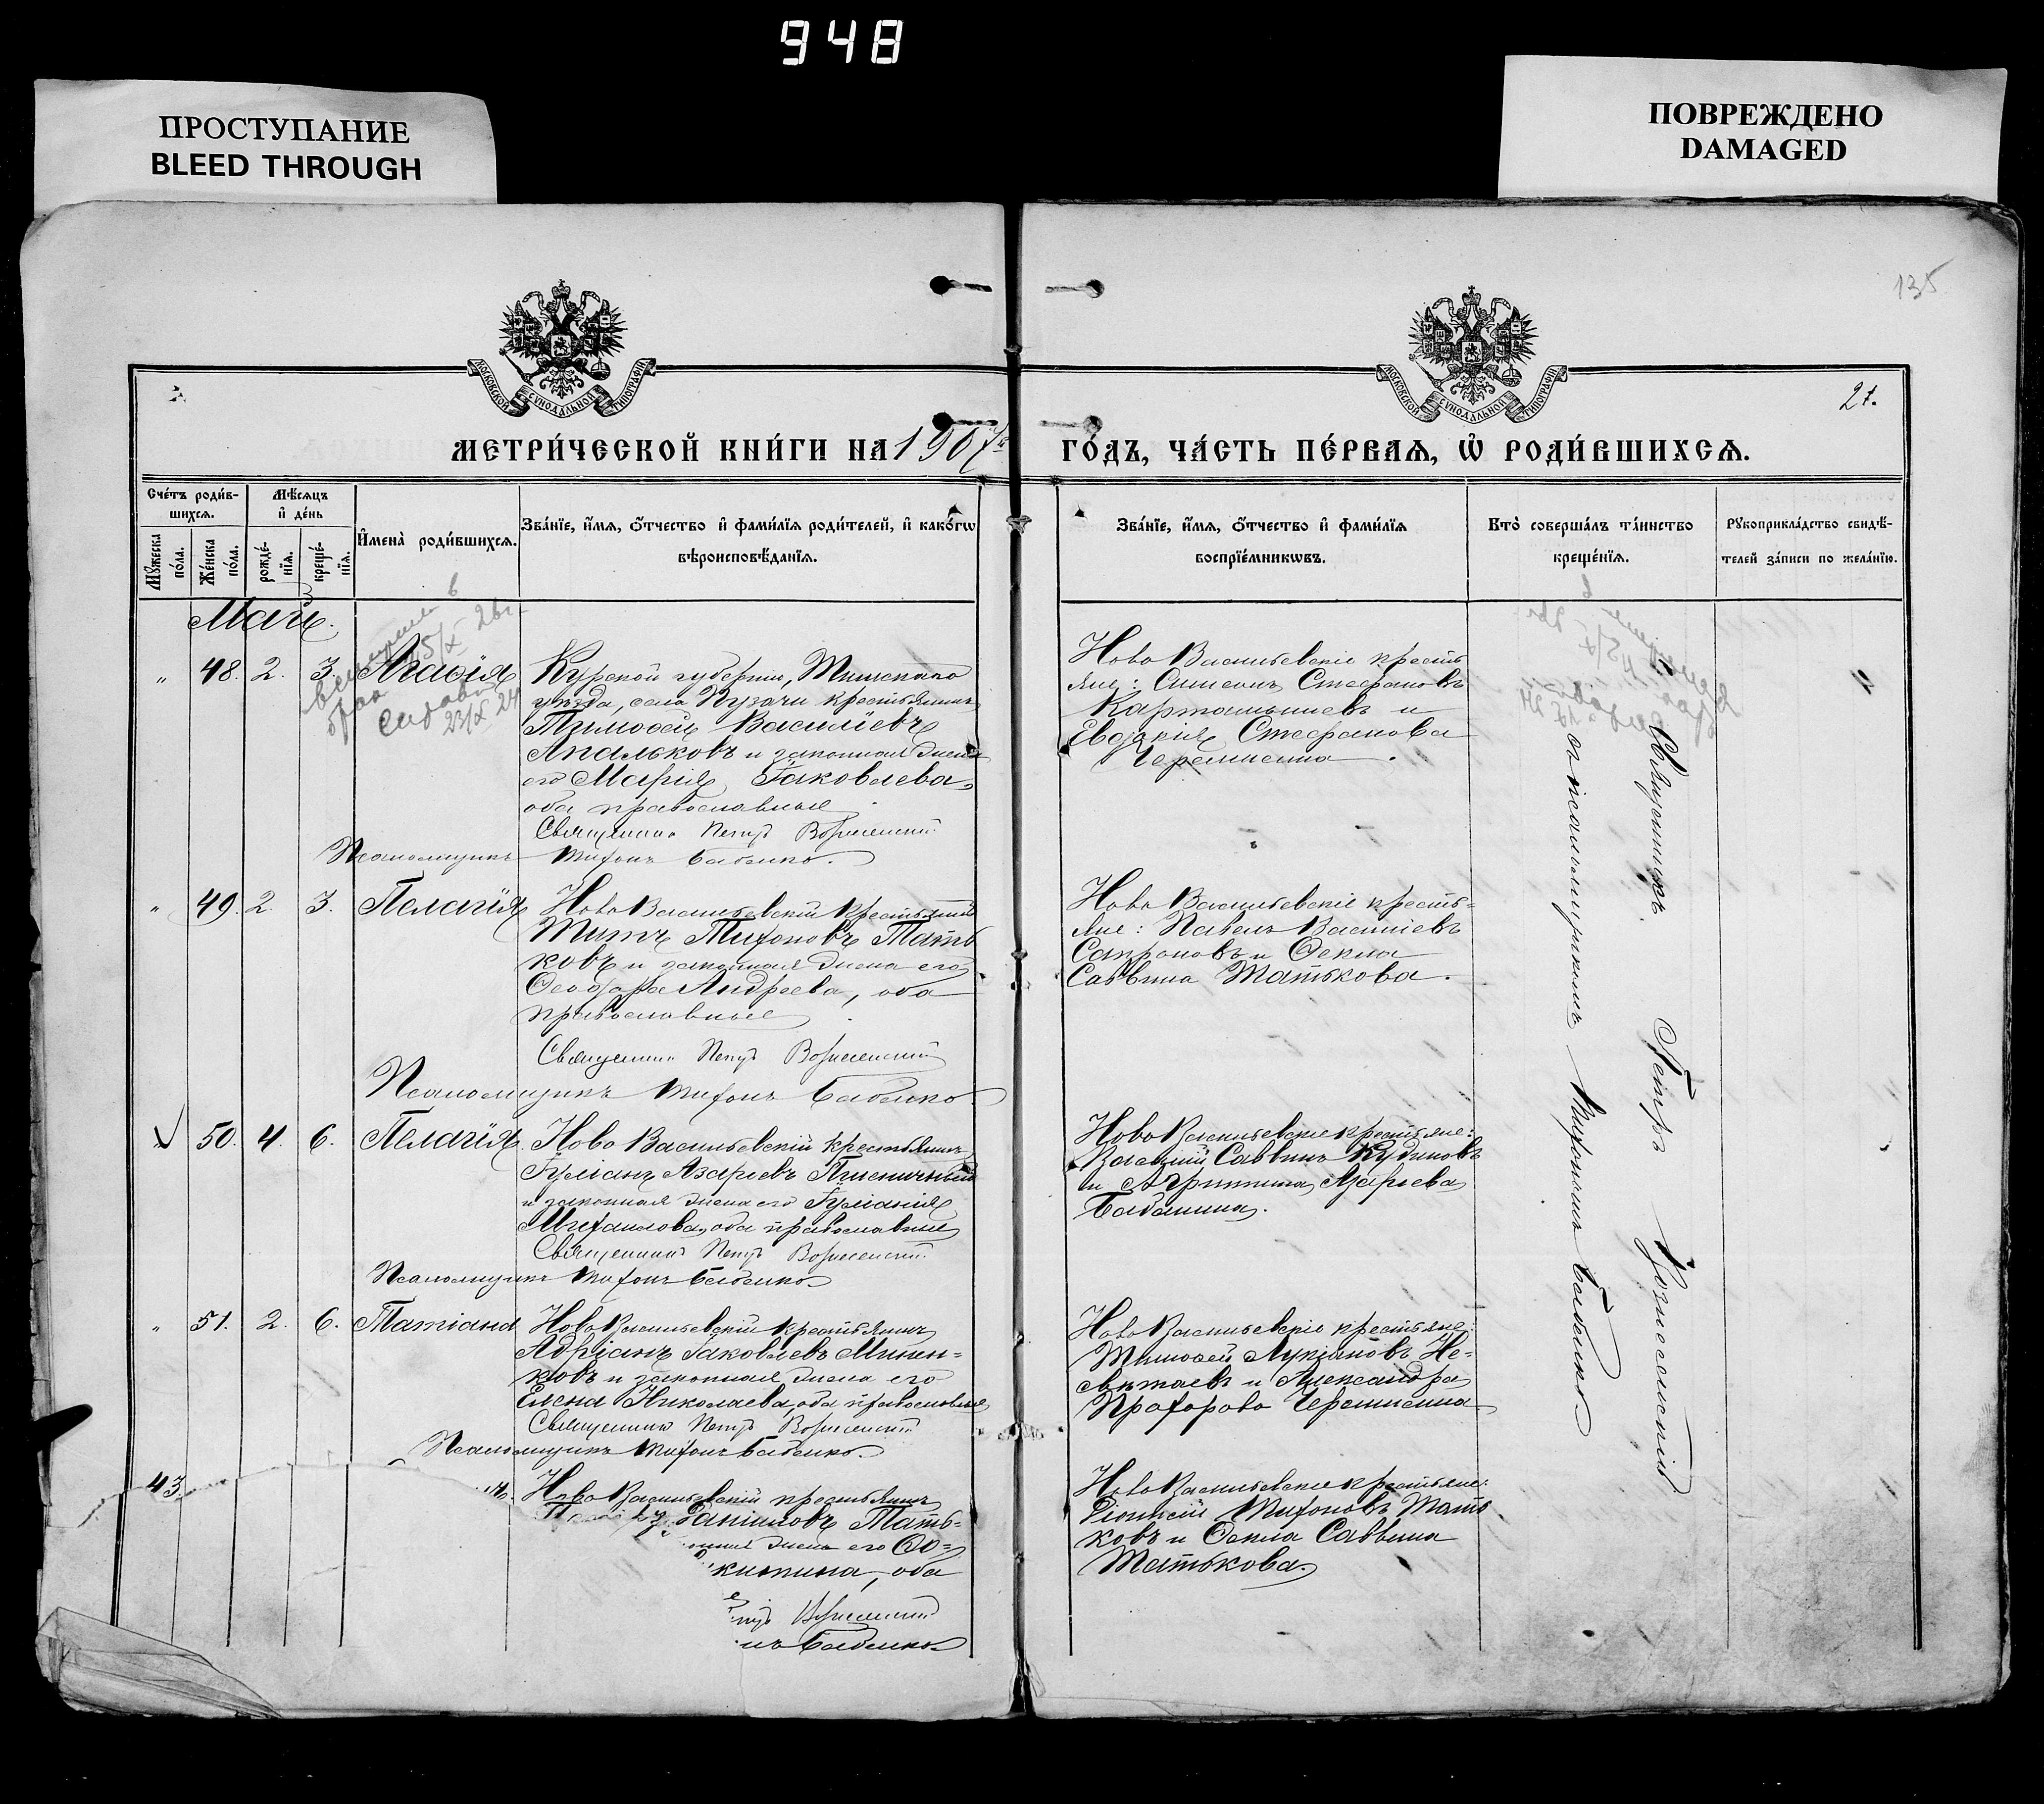 948
ПРОСТУПАНИЕ
BLEED THROUGH
ПОВРЕЖДЕНО
DAMAGED
135
МОСКОВСКОЙ СѴНОДАЛЬНОЙ ТИПОГРАФІИ
МОСКОВСКОЙ СѴНОДАЛЬНОЙ ТИПОГРАФІИ
21.
МЕТРИ́ЧЕСКОЙ КНИ́ГИ НА 1907
ГО́ДЪ, ЧА́СТЬ ПЕ́РВАѦ, Ѡ҆ РОДИ́ВШИХСѦ.
Сче́тъ роди́в-
шихсѧ.
Мꙋ́жеска по́ла.
Же́нска по́ла.
Мѣ́сѧцъ
и҆ де́нь
рожде́-
нїѧ.
креще́-
нїѧ.
И҆мена̀ роди́вшихсѧ.
Зва́нїе, и҆́мѧ, ѻ҆́тчество и҆ фами́лїѧ роди́телей, и҆ како́гѡ
вѣроисповѣ́данїѧ.
Зва́нїе, и҆́мѧ, ѻ҆́тчество и҆ фами́лїѧ
воспрїе́мникѡвъ.
Кто̀ соверша́лъ та́инство
креще́нїѧ.
Рꙋкоприкла́дство свидѣ́-
телей за́писи по жела́нїю.
Май.
" 48. 2. 3. Агаѳія
Курской губерніи, Тимскаго
уѣзда, села Пузачи крестьянинъ
Тимоѳей Василіевъ
Апальковъ и законная жена
его Марія Іаковлева,
оба православные
Священникъ Петръ Вознесенскій
Псаломщикъ Тихонъ Бабенко.
Ново Васильевскіе кресть
яне: Симеонъ Стефановъ
Картамышевъ и
Евдокія Стефанова
Черемисина.
" 49. 2. 3. Пелагія
Ново Васильевскій крестьянинъ
Титъ Тихоновъ Мать
ковъ и законная жена его
Ѳеодора Андреева, оба
православные
Священникъ Петръ Вознесенскій
Псаломщикъ Тихонъ Бабенко.
Ново Васильевскіе кресть=
яне: Павелъ Василіевъ
Сапроновъ и Ѳекла
Саввина Матькова.
" 50. 4. 6. Пелагія
Ново Васильевскій крестьянинъ
Іуліанъ Азаріевъ Пшеничный
и законная жена его Іуліанія
Михаилова, оба православные
Священникъ Петръ Вознесенскій
Псаломщикъ Тихонъ Бабенко
Ново Васильевскіе крестьяне:
Василій Саввинъ Кудиновъ
и Агриппина Азаріева
Бабанина.
" 51. 2. 6. Татіана
Ново Васильевскій крестьянинъ
Адріанъ Іаковлевъ Минен=
ковъ и законная жена его
Елена Николаева, оба православные
Священникъ Петръ Вознесенскій
Псаломщикъ Тихонъ Бабенко.
Ново Васильевскіе крестьяне:
Тимоѳей Лукіановъ Не=
свѣтаевъ и Александра
Прохорова Черемисина
43.
Ново Васильевскій крестьянинъ
Даніиловъ Мать=
жена его
оба
Вознесенскій
Бабенко
Ново Васильевскіе крестьяне:
Діонисій Тихоновъ Мать
ковъ и Ѳекла Саввина
Матькова.
Священникъ Петръ Вознесенскій
съ псаломщикомъ Тихономъ Бабенко